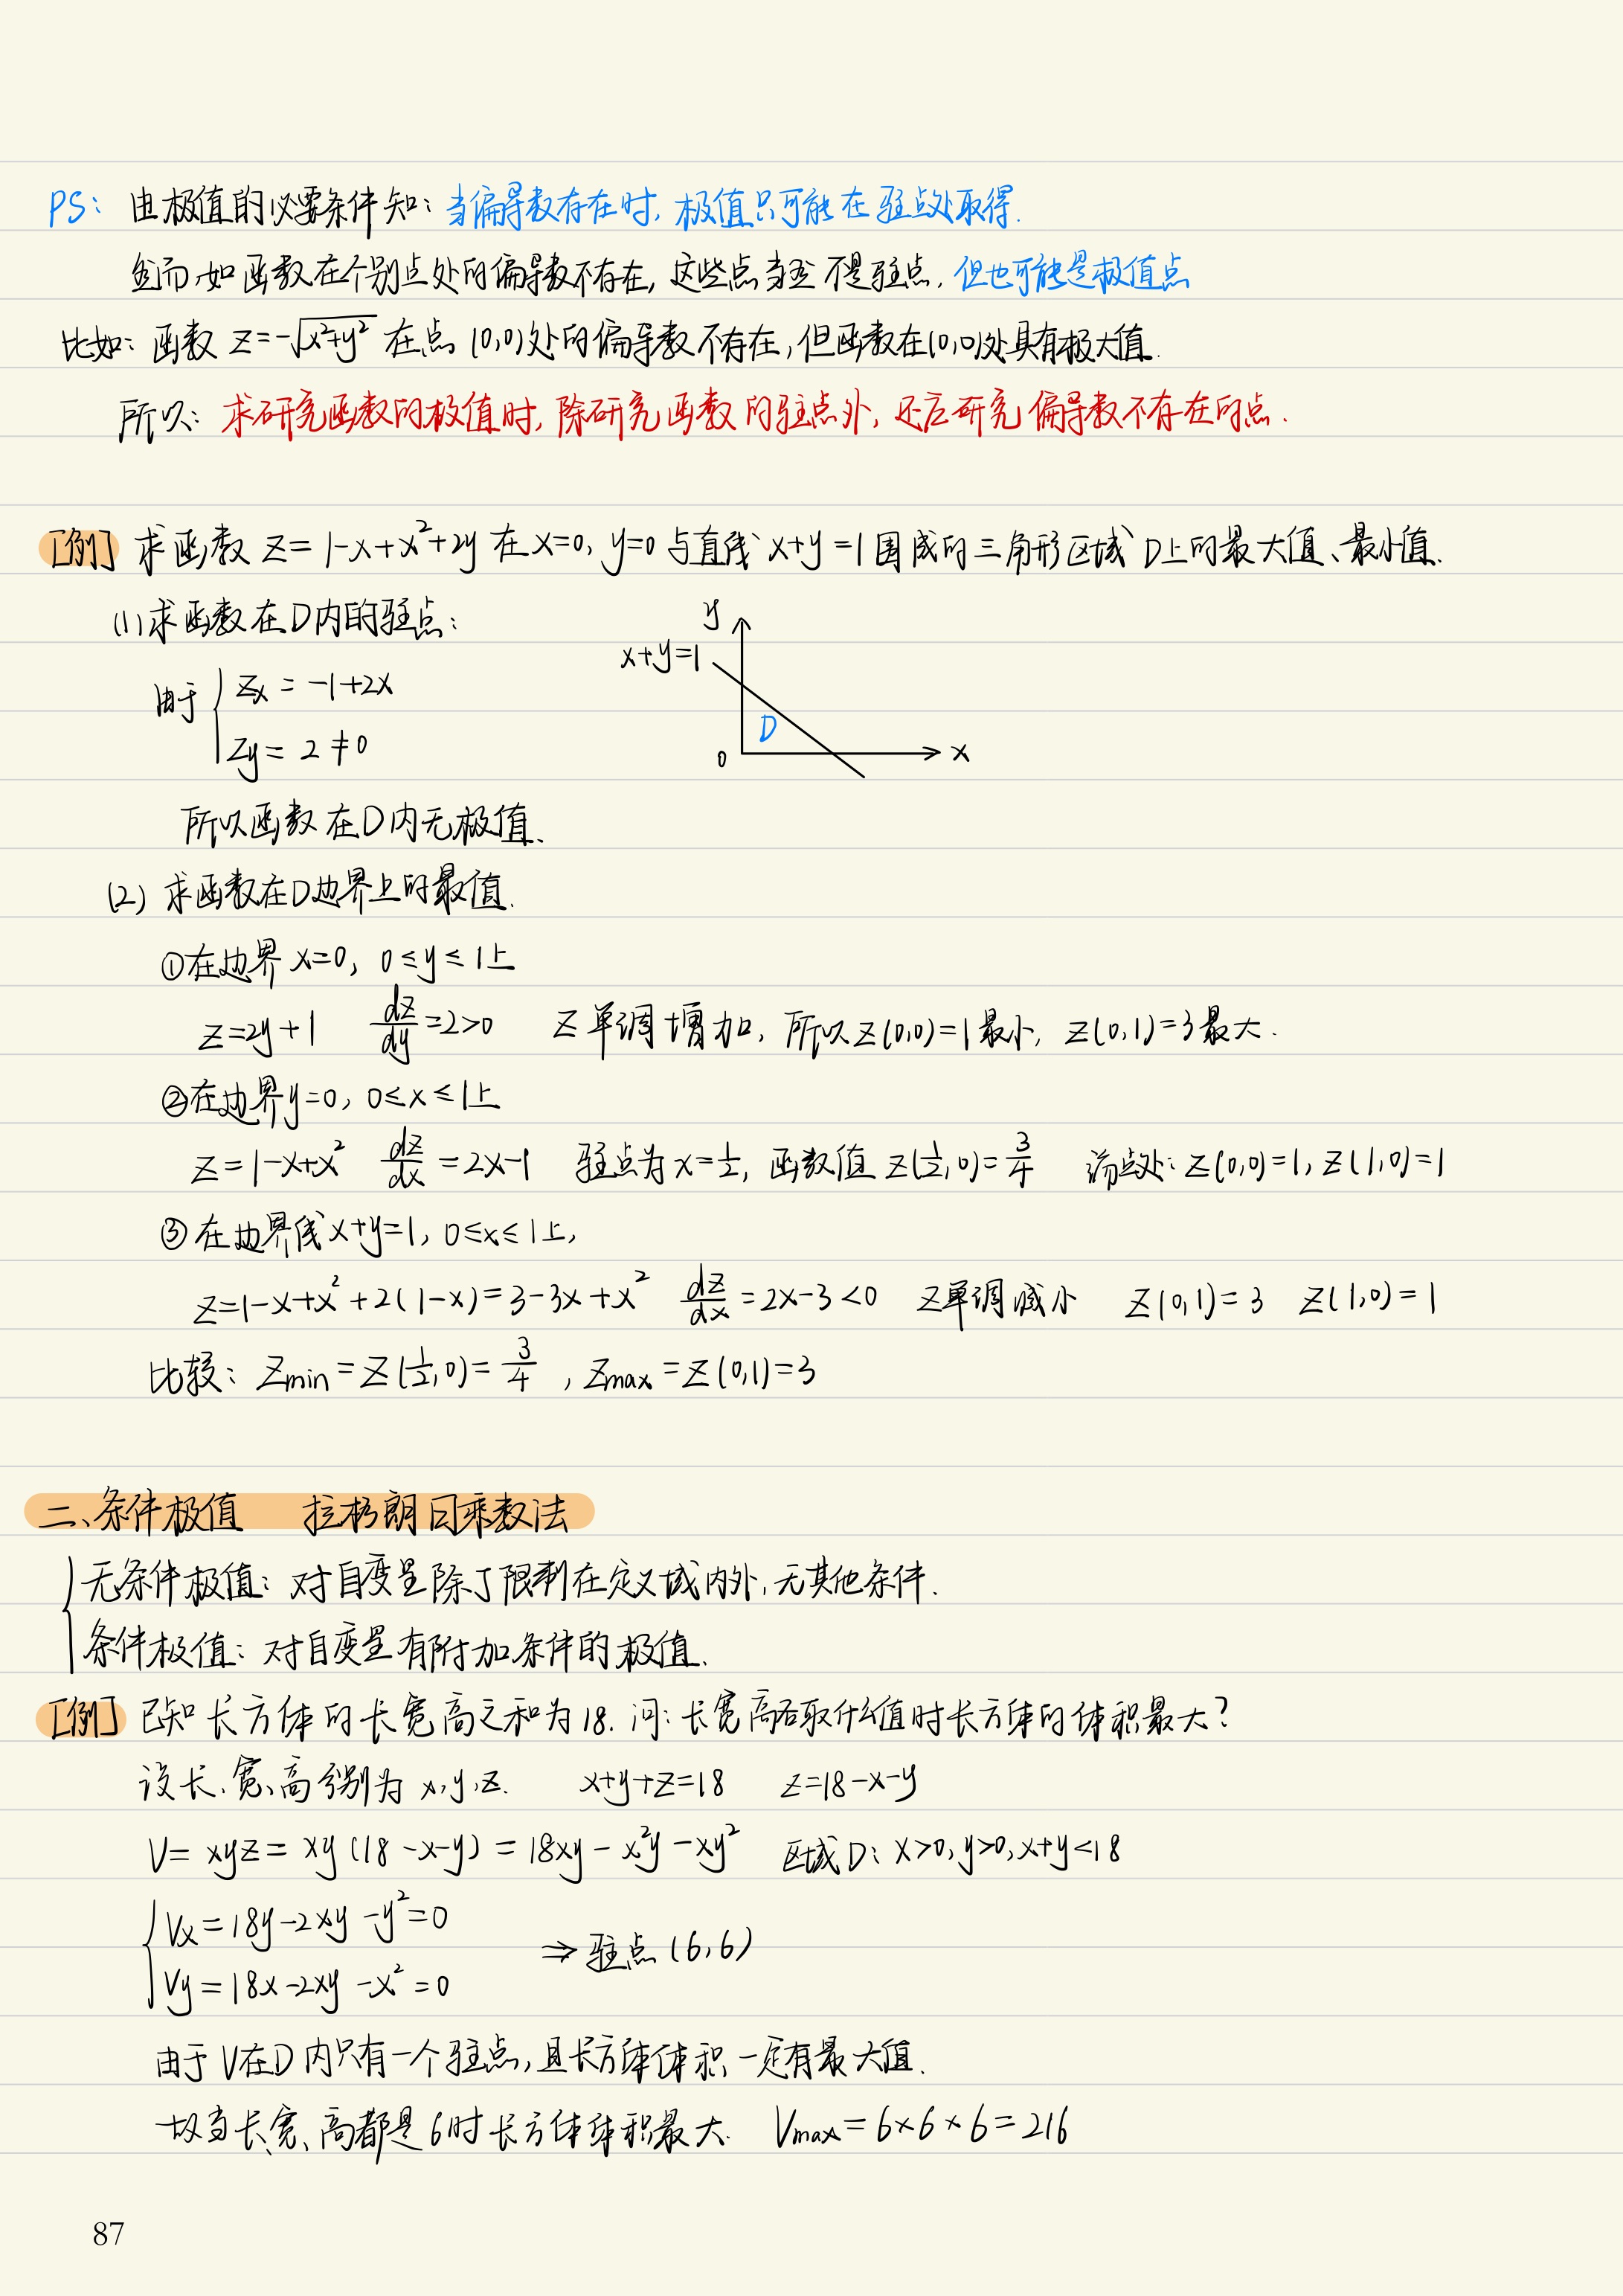 PS: 由极值的必要条件知: 当偏导数存在时, 极值只可能在驻点处取得.
然而,如函数在个别点处的偏导数不存在, 这些点当然不是驻点, 但也可能是极值点
比如: 函数 z=-√(x²+y²) 在点 (0,0)处的偏导数不存在, 但函数在(0,0)处具有极大值.
所以: 求研究函数的极值时, 除研究函数的驻点外, 还应研究偏导数不存在的点.
[例] 求函数 z=1-x+x²+2y 在 x=0, y=0 与直线 x+y=1围成的三角形区域D上的最大值、最小值.
(1)求函数在D内的驻点:
y
x+y=1
D
0
x
由于 { zx = -1+2x
zy = 2 ≠ 0
所以函数在D内无极值.
(2) 求函数在D边界上的最值.
①在边界 x=0, 0≤y≤1上
z=2y+1 dz/dy=2>0 z单调增加, 所以z(0,0)=1最小, z(0,1)=3最大.
②在边界y=0, 0≤x≤1上
z=1-x+x² dz/dx=2x-1 驻点为x=1/2, 函数值 z(1/2,0)=3/4 端点处: z(0,0)=1, z(1,0)=1
③在边界线x+y=1, 0≤x≤1上,
z=1-x+x²+2(1-x)=3-3x+x² dz/dx=2x-3<0 z单调减小 z(0,1)=3 z(1,0)=1
比较: zmin=z(1/2,0)=3/4, zmax=z(0,1)=3
二、条件极值 拉格朗日乘数法
{ 无条件极值: 对自变量除了限制在定义域内外,无其他条件.
条件极值: 对自变量有附加条件的极值.
[例] 已知长方体的长宽高之和为18. 问: 长宽高各取什么值时长方体的体积最大?
设长、宽、高分别为 x,y,z. x+y+z=18 z=18-x-y
V=xyz=xy(18-x-y)=18xy-x²y-xy² 区域D: x>0,y>0,x+y<18
{ Vx=18y-2xy-y²=0
Vy=18x-2xy-x²=0 ⇒ 驻点(6,6)
由于V在D内只有一个驻点,且长方体体积一定有最大值.
故当长、宽、高都是6时长方体体积最大. Vmax=6×6×6=216
87